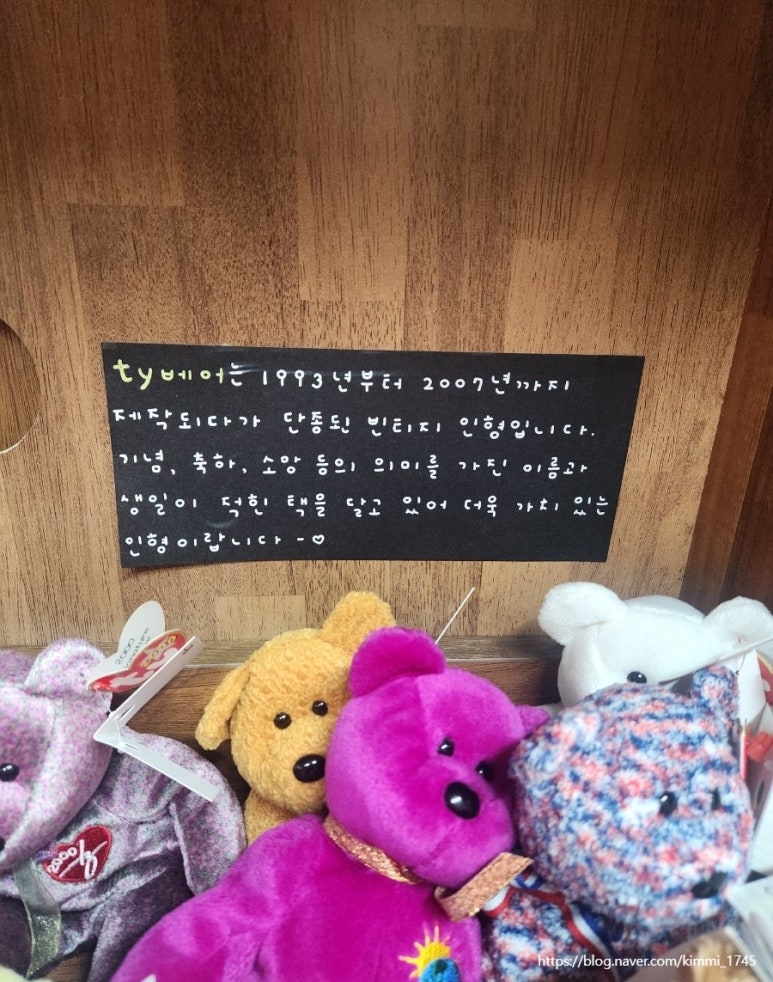 ty베어는 1993년부터 2007년까지
제작되다가 단종된 빈티지 인형입니다.
기념, 축하, 소망 등의 의미를 가진 이름과
생일이 적힌 택을 달고 있어 더욱 가치 있는
인형이랍니다 - ♡
2000
https://blog.naver.com/kimmi_1745